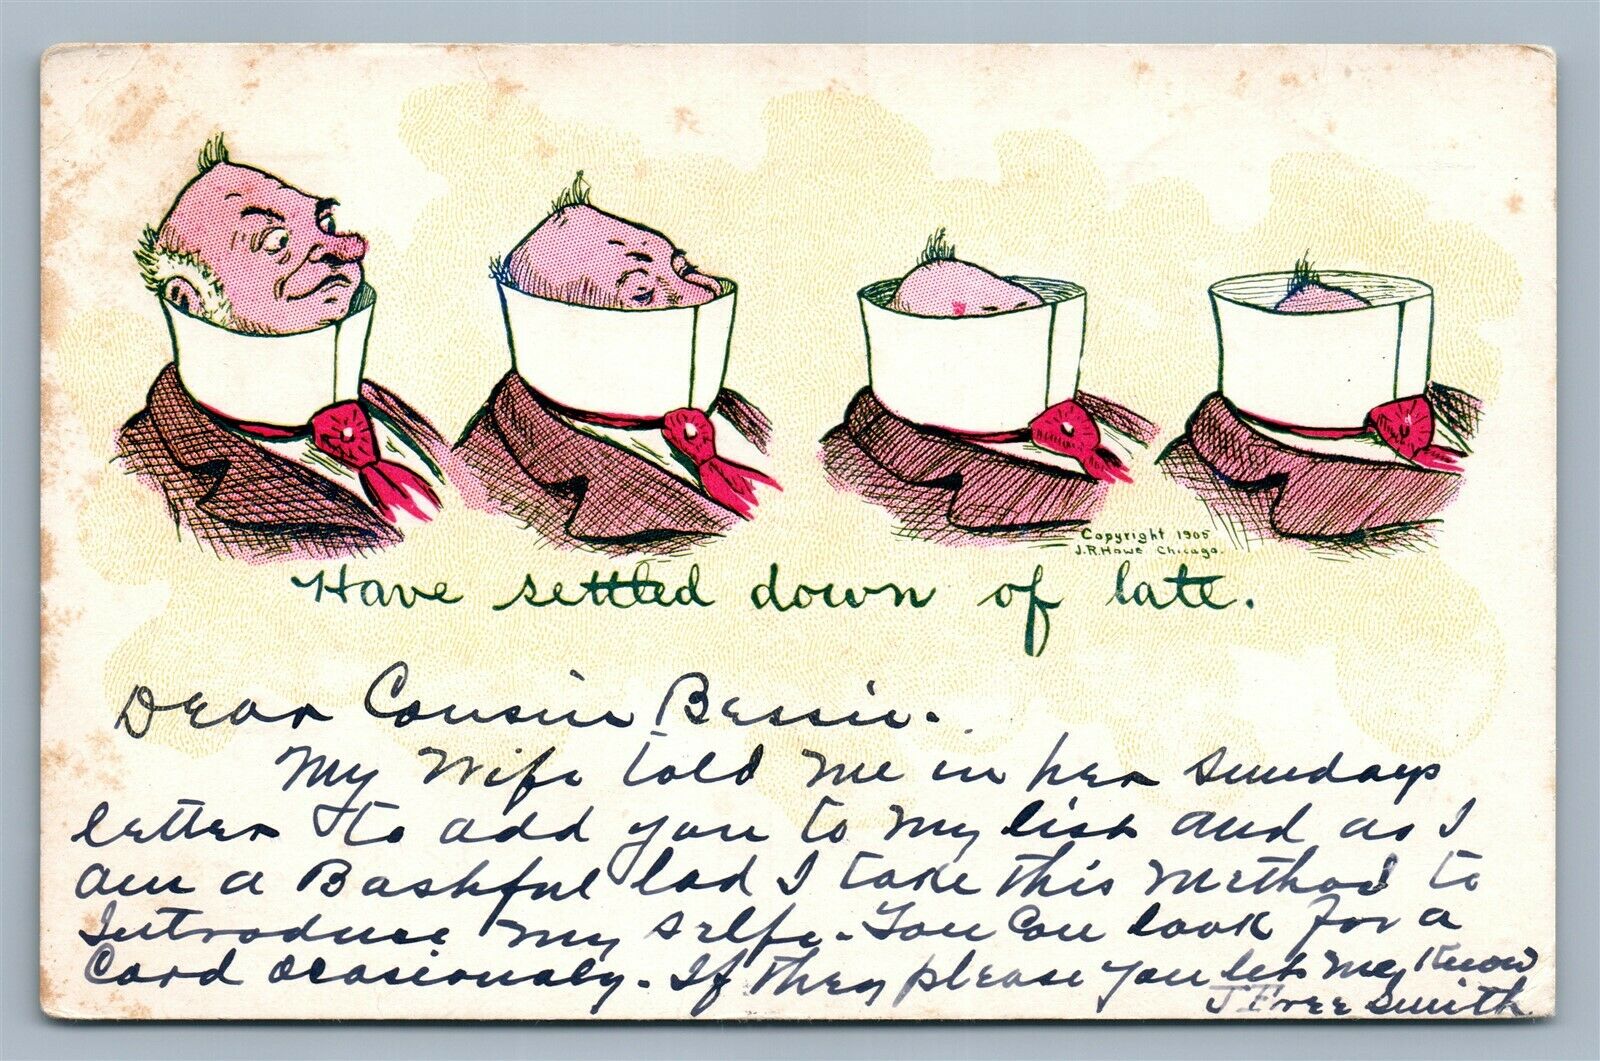 Copyright 1905
J.R. Howe Chicago.
Have settled down of late.
Dear Cousin Bessie.
My Wife told me in her Sundays
letter to add you to my list and as I
am a Bashful lad I take this Method to
Introduce my selfe - You Can look for a
Card Ocasionaly. If they please you let me know
J Free Smith